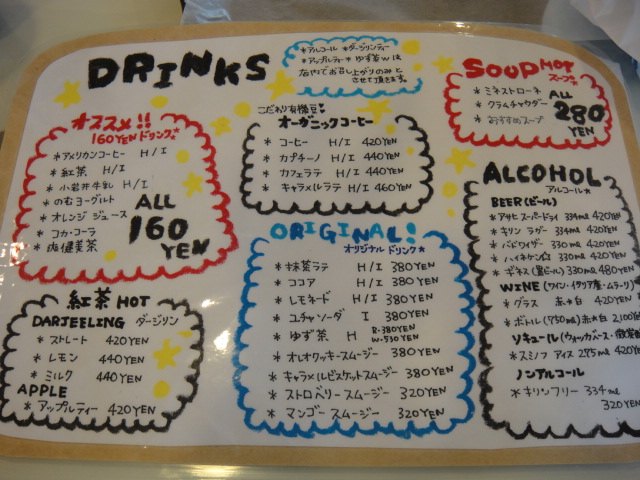 DRINKS
*アルコール *ダージリンティー
*アップルティー *ゆず茶Wは
店内でお召し上がりのみと
させて頂きます。
オススメ!!
160YEN ドリンク*
*アメリカンコーヒー H/I
*紅茶 H/I
*小岩井牛乳 H/I
*のむヨーグルト
*オレンジジュース
*コカ・コーラ
*爽健美茶
ALL
160
YEN
紅茶 HOT
DARJEELING ダージリン
*ストレート 420YEN
*レモン 440YEN
*ミルク 440YEN
APPLE
*アップルティー 420YEN
こだわり有機豆!
オーガニックコーヒー
*コーヒー H/I 420YEN
*カプチーノ H/I 440YEN
*カフェラテ H/I 440YEN
*キャラメルラテ H/I 460YEN
ORIGINAL!
オリジナルドリンク*
*抹茶ラテ H/I 380YEN
*ココア H/I 380YEN
*レモネード H/I 380YEN
*ユチャソーダ I 380YEN
*ゆず茶 H R-380YEN
W-530YEN
*オレオクッキースムージー 380YEN
*キャラメルビスケットスムージー 380YEN
*ストロベリースムージー 320YEN
*マンゴースムージー 320YEN
SOUP HOT
スープ
*ミネストローネ
*クラムチャウダー
*おすすめスープ
ALL
280
YEN
ALCOHOL
アルコール*
BEER(ビール)
*アサヒスーパードライ 334ml 420YEN
*キリンラガー 334ml 420YEN
*バドワイザー 330ml 420YEN
*ハイネケン 330ml 420YEN
*ギネス(黒ビール) 330ml 480YEN
WINE(ワイン・イタリア産・
*グラス 赤・白 420YEN
*ボトル(750ml)赤・白 2,100YEN
リキュール(ウォッカベース・微炭酸
*スミノフアイス 275ml 420YEN
ノンアルコール
*キリンフリー 334ml
320YEN